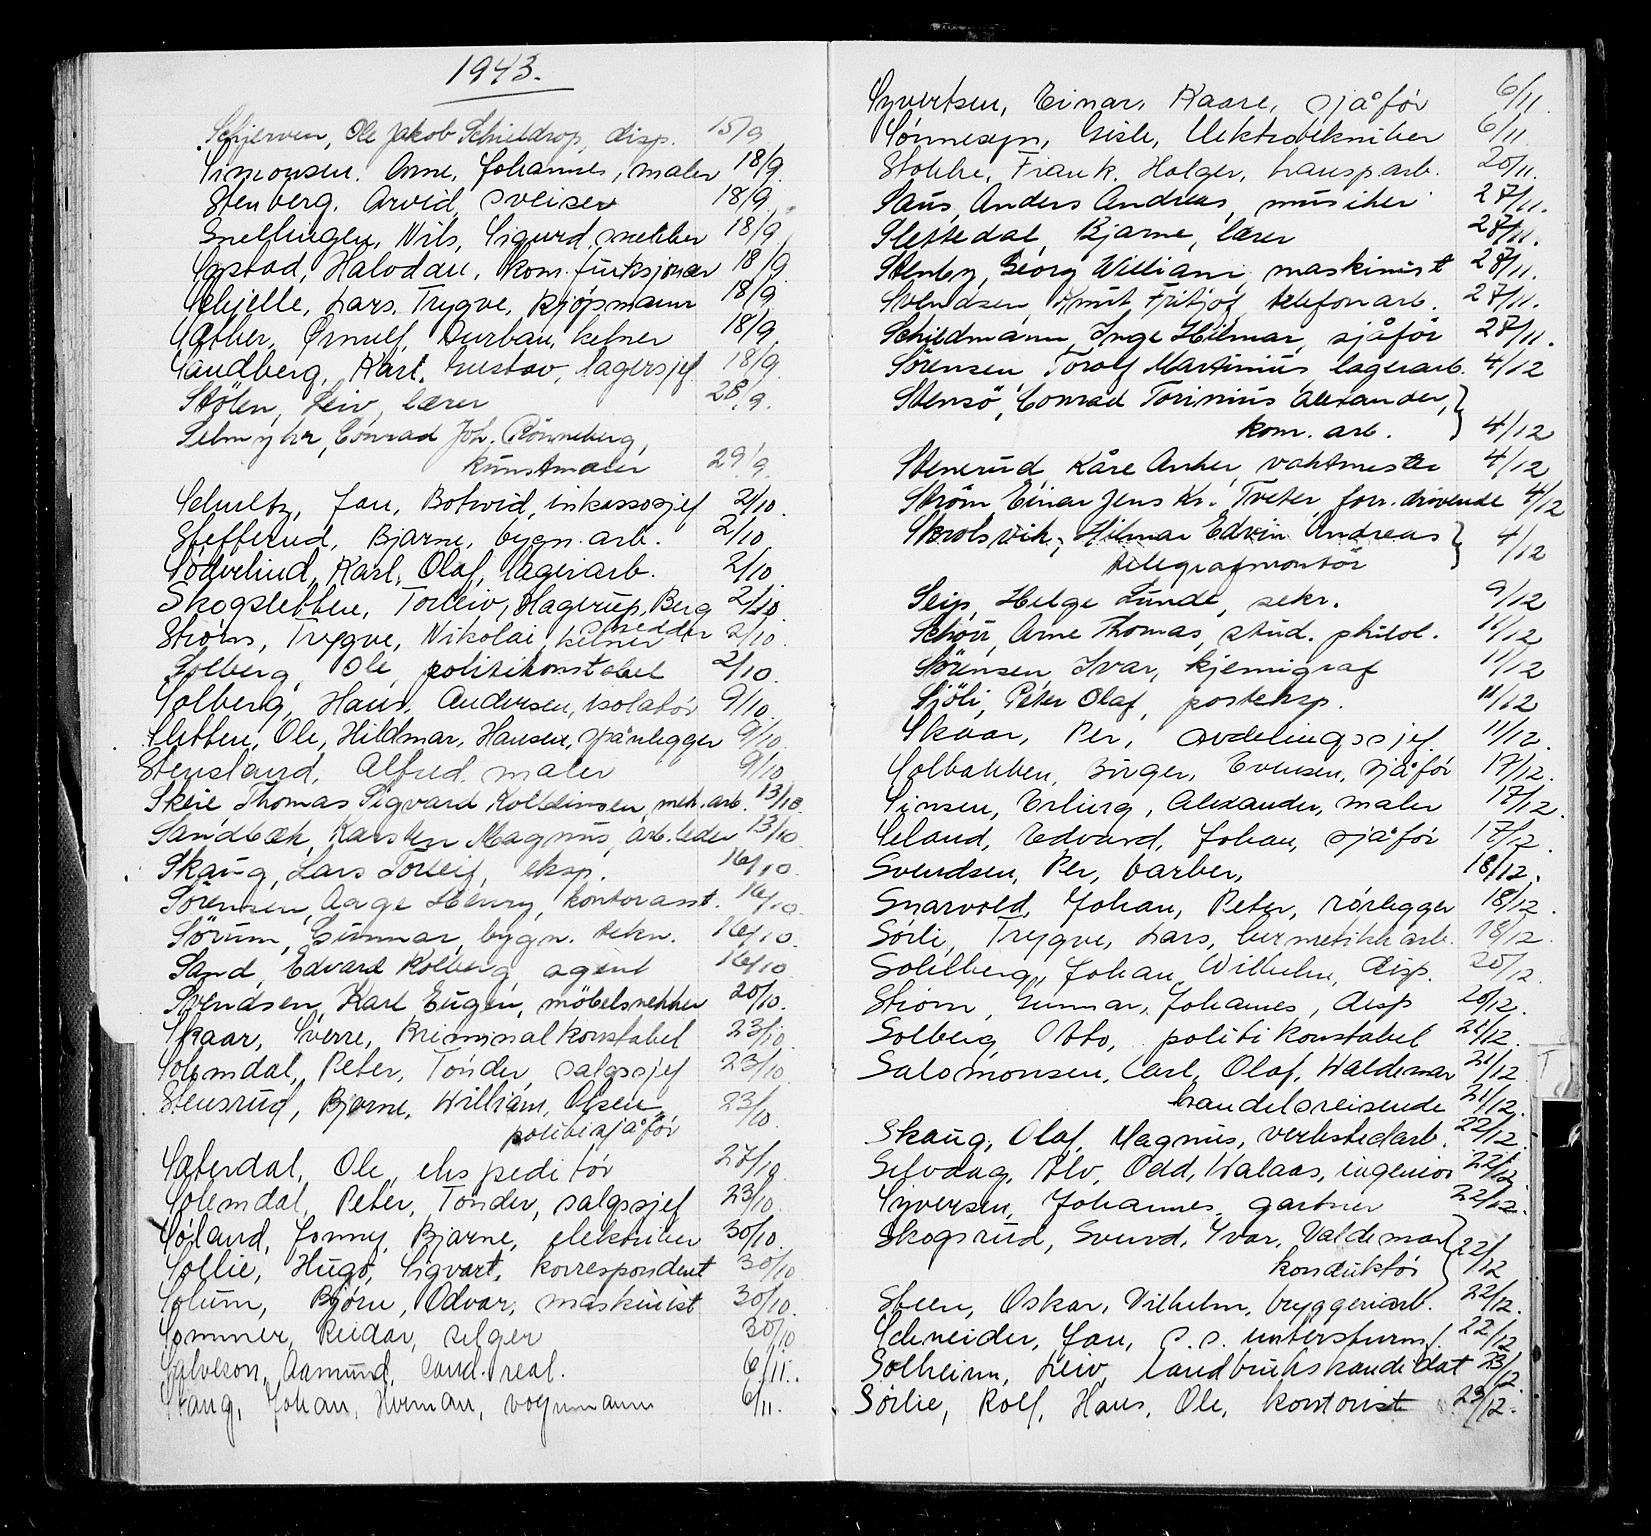 1943.
Schjerven, Ole Jakob Schieldrop, disp. 15/9
Simonsen. Arne, Johannes, maler 18/9.
Stenberg. Arvid, sveiser 18/9
Snellingen, Nils, Sigurd, snekker 18/9
Halvdan, kom. funksjonær 18/9
Schjelle, Lars, Trygve, kjøpmann 18/9
Sæther, Ørnulf, Durban, kelner 18/9
Sandberg, Karl, Gustav, lagersjef 18/9
Stölen, Leiv, lærer 28/9.
Selmyhr, Conrad Joh. Rönneberg,
kunstmaler 29/9.
Schultz, Jan, Botvid, inkassosjef 2/10.
Stefferud, Bjarne, bygn. arb. 2/10
Söderlind, Karl, Olaf, lagerarb. 2/10.
Skogsletten, Torleiv, Hagerup, Berg 2/10
skredder
Ström, Trygve, Nikolai kelner 2/10.
Solberg, Ole, politikonstabel 2/10.
Solberg, Hans, Andersen, isolatör 9/10.
Sletten, Ole, Hildmar, Hansen, 9/10.
Stensland, Alfred, maler 9/10
Skeie Thomas Sigvard Kolbeinsen, mek. arb. 13/10
Sandbæk, Karsten Magnus, arb. leder 13/10
Skaug, Lars Torleif, eksp. 16/10.
Sörensen, Aage Henry, kontorasst. 16/10.
Sørum, Gunnar, bygn. tekn. 16/10.
Sand, Edvard Kolberg, agent 16/10
Svendsen, Karl Eugen, möbelsnekker 20/10.
Skaar, Sverre, Kriminalkonstabel 23/10
Solemdal, Peter, Tönder, salgssjef 23/10.
Stensrud, Bjarne, William, Olsen,
politisjåför 23/10.
Sæterdal, Ole, ekspeditör 27/10
Solemdal, Peter, Tönder, salgssjef 23/10.
Söland, Jonny, Bjarne, elektriker 30/10.
Sollie, Hugo, Sigvart, korrespondent 30/10
Solum, Björn, Odvar, maskinist 30/10.
Sommer, Reidar, selger 30/10
Aamund, cand. real. 6/11.
Stang, Johan, Herman, vognmann 6/11.
Syvertsen, Einar, Kaare, sjåför 6/11.
Sönnesyn, Gisle, Elektrotekniker 6/11
Stokke, Frank, Holger, transp arb. 20/11.
Saus, Anders Andreas, musiker 27/11.
Slettedal, Bjarne, lærer 27/11.
Stenby, Georg William, maskinist 27/11.
Svendsen, Knut, Fritjof, telefonarb. 27/11.
Schildmann, Inge Hilmar, sjåför 27/11.
Sörensen Torolf Martinius, lagerarb. 4/12
Stensö, Conrad Torinius Alexander,
kom. arb. 4/12
Stenerud, Kåre Anker, vaktmester 4/12
Ström Einar Jens Kr. Tveter, forr. drivende 4/12
Skrolsvik, Hilmar Edvin Andreas
telegrafmontör 4/12
Seip, Helge Lunde, sekr. 9/12
Schöu, Arne Thomas, stud. philol. 11/12
Sörensen, Ivar, kjemigraf 11/12
Sjöli, Peter Olaf, posteksp. 11/12
Skaar, Per, avdelingssjef 11/12.
Solbakken, Birger, Evensen, sjåför 17/12.
Sinsen, Erling, Alexander, maler 17/12.
Seland, Edvard, Johan, sjåför 17/12
Svendsen, Per, barber, 18/12.
Snarvold, Johan, Peter, rörlegger 18/12.
Sörli, Trygve, Lars, hermetikk arb. 18/12.
Solilberg, Johan, Wilhelm, disp. 20/12
Ström, Gunnar, Johannes, disp 20/12.
Solberg, Otto, politikonstabel 21/12.
Salomonsen, Carl, Olaf, Waldemar 21/12
handelsreisende 21/12.
Skaug, Olaf, Magnus, verkstedarb. 22/12.
Selvaag, Alv, Odd, Walaas, ingeniør 22/12.
Syversen, Johannes, gartner 22/12.
Skogsrud, Svend, Ivar, Valdemar
konduktör 22/12
Steen, Oskar, Vilhelm, bryggeriarb. 22/12.
Schneider, Jan, s.s. untersturmf. 22/12
Solheim, Leiv, landbrukskandidat 23/12.
Sörlie, Rolf, Hans, Ole, kontorist 23/12.
T